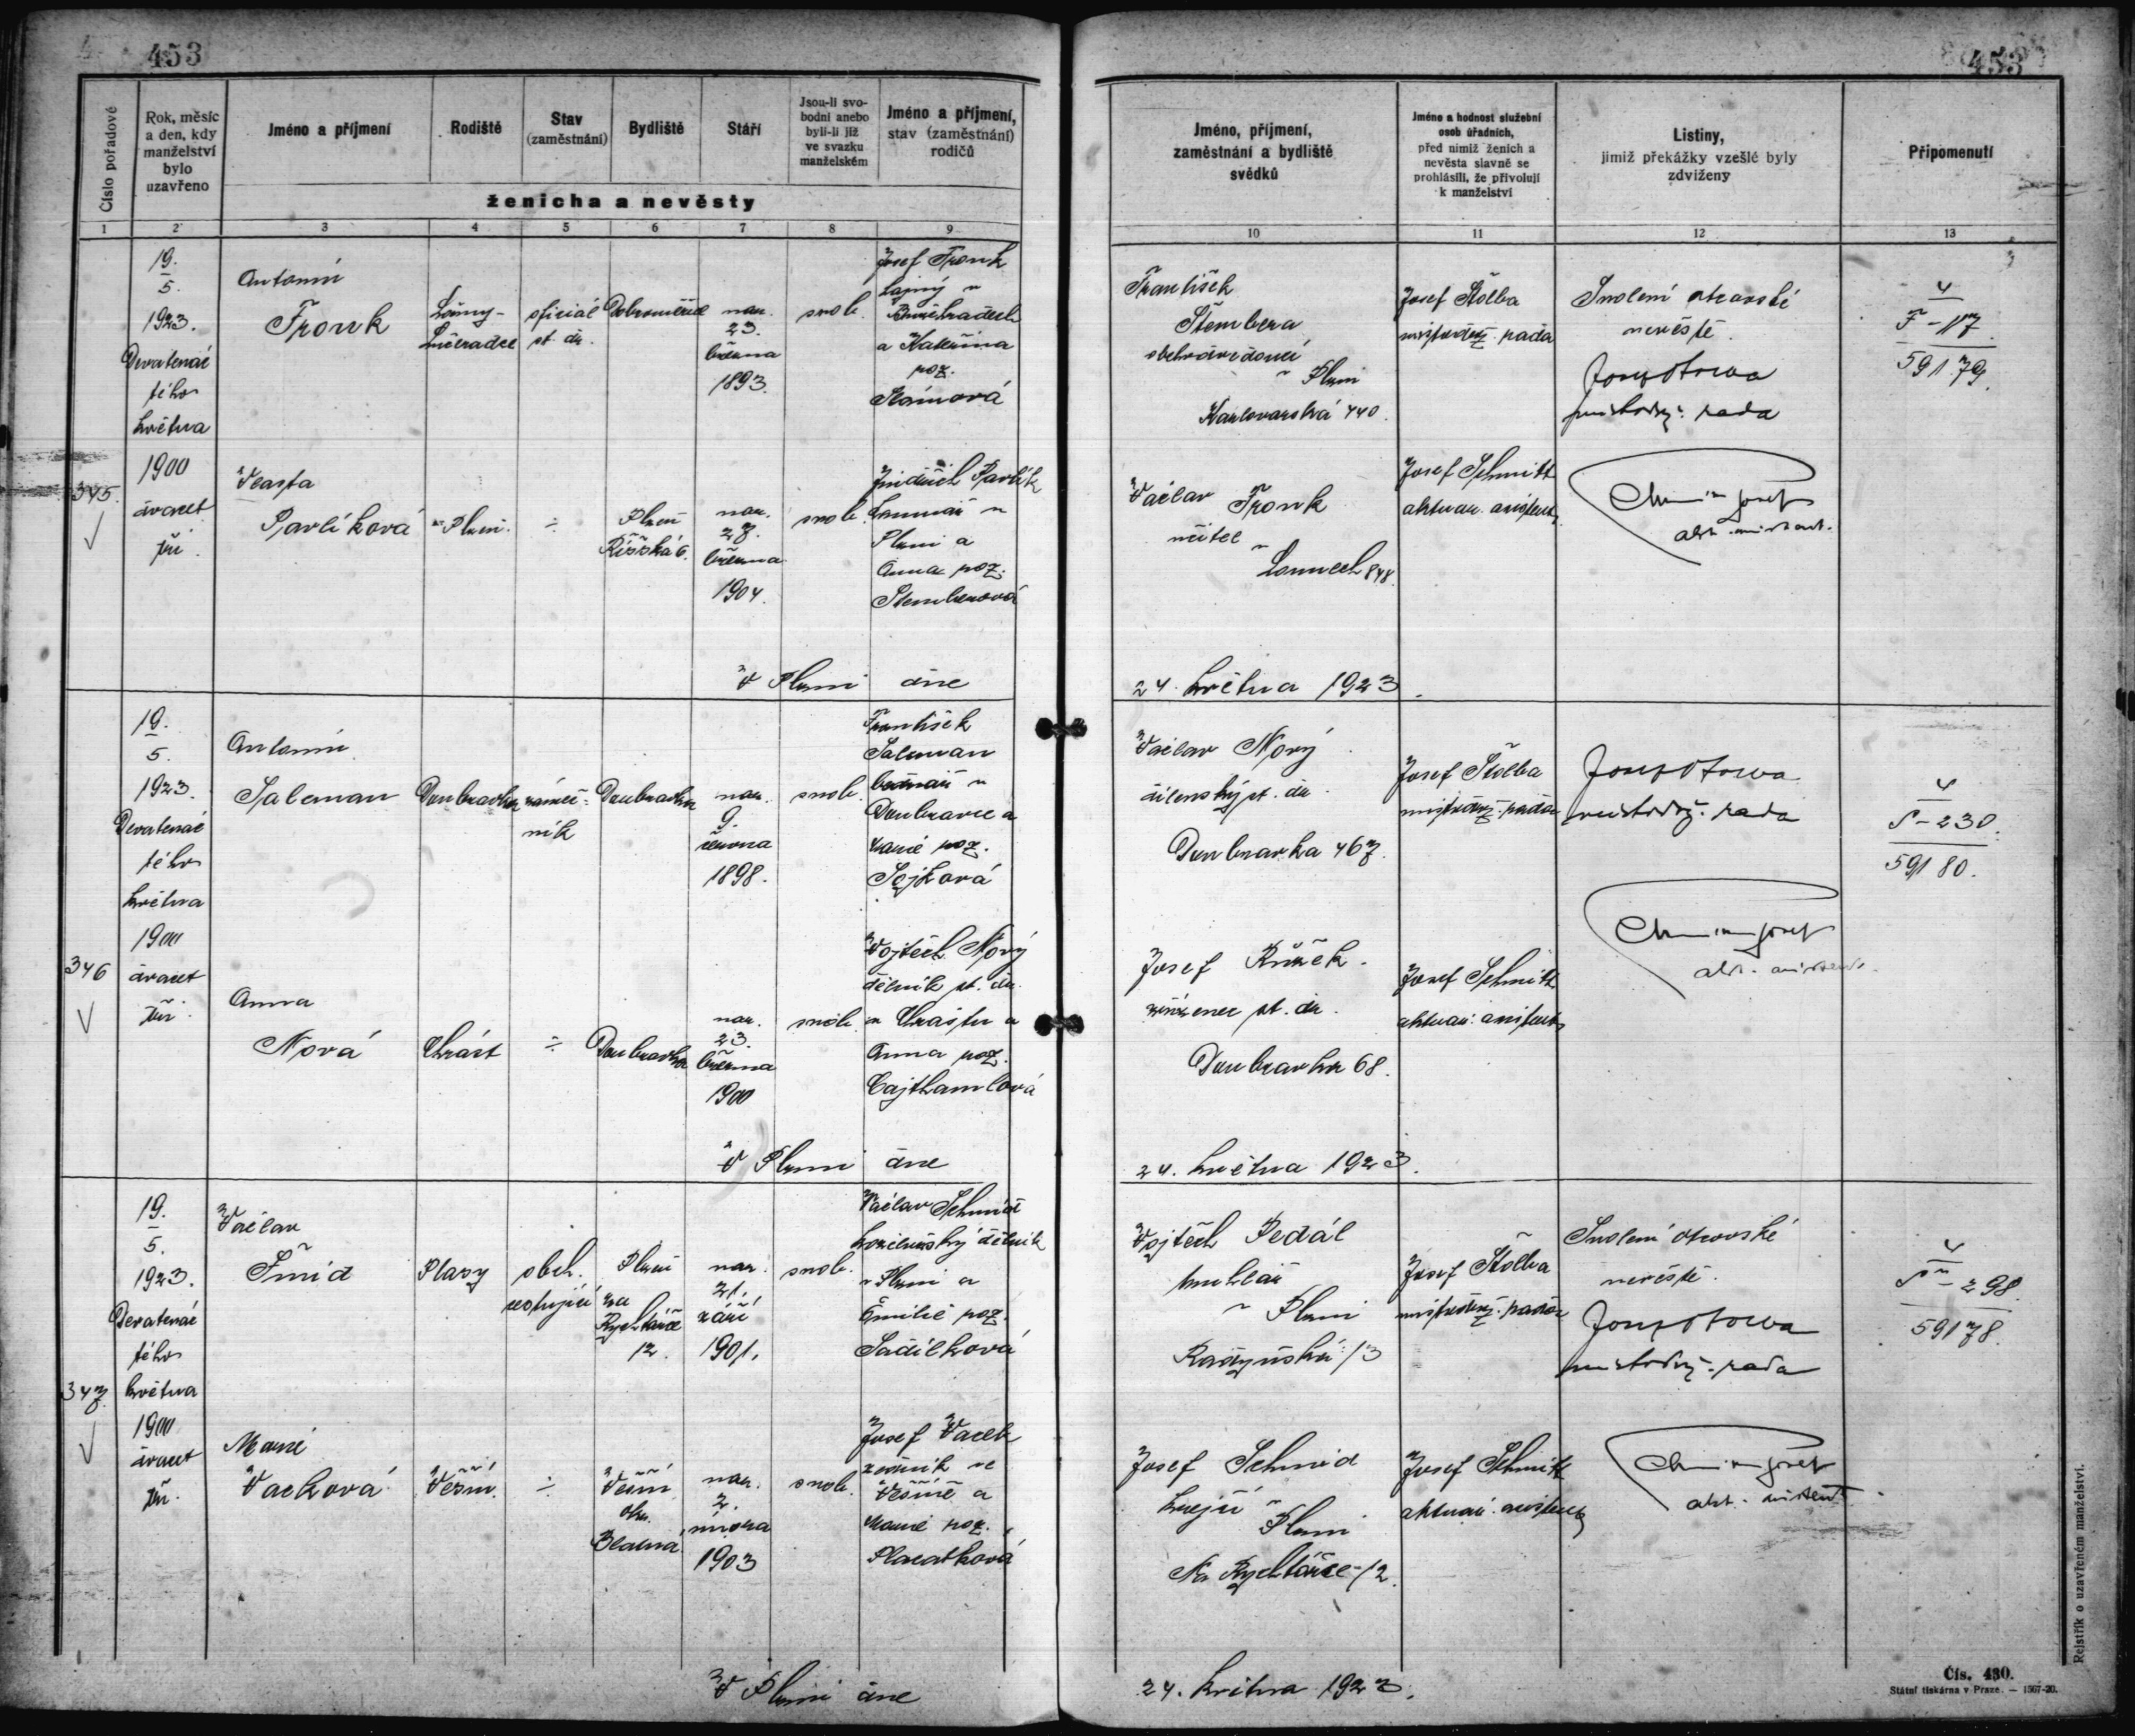 453
453
Číslo pořadové
Rok, měsíc
a den, kdy
manželství
bylo
uzavřeno
Jméno a příjmení
Rodiště
Stav
(zaměstnání)
Bydliště
Stáří
Jsou-li svo-
bodni anebo
byli-li již
ve svazku
manželském
Jméno a příjmení,
stav (zaměstnání)
rodičů
ženicha a nevěsty
Jméno, příjmení,
zaměstnání a bydliště
svědků
Jméno a hodnost služební
osob úřadních,
před nimiž ženich a
nevěsta slavně se
prohlásili, že přivolují
k manželství
Listiny,
jimiž překážky vzešlé byly
zdviženy
Připomenutí
1 2 3 4 5 6 7 8 9 10 11 12 13
345.
19.
5.
1923.
Devatenác
tého
května
1900
dvacet
tři.
Antonín
Fronk
oficiál
st. dr.
nar.
23.
března
1893.
svob.
Josef Fronk
a Kateřina
roz.
Vlasta
Pavlíková
Plzeň.
÷
Plzeň
Říšská 6.
nar.
27.
března
1904.
svob.
Jindřich Pavlík
v
Plzni a
Anna roz.
Štemberová
František
Štembera
obchodvedoucí
v Plzni
Karlovarská 440.
Václav Fronk
učitel
v
Lounech 848.
Josef Štolba
místodrž. rada
Josef Schmitt
aktuár. asistent
Svolení otcovské
nevěstě.
místodrž. rada
akt. asistent.
4
F-17
59179.
V Plzni dne
24. května 1923.
346
19.
5.
1923.
Devatenác
tého
května
1900
dvacet
tři.
Antonín
Salcman
Doubravka
zámeč-
ník
Doubravka
nar.
9.
června
1898.
svob.
František
Salcman
v
Doubravce a
Marie roz.
Sojková
Anna
Nová
Chrást
÷
Doubravka
nar.
23.
března
1900
svob.
Vojtěch Nový
dělník st. dr.
v Chrástu a
Anna roz.
Cajthamlová
Václav Nový
dílenský st. dr.
Doubravka 467.
Josef Růžek
zřízenec st. dr.
Doubravka 68.
Josef Štolba
místodrž. rada
Josef Schmitt
aktuár. asistent
místodrž. rada
akt. asistent.
4
S-230.
59180.
V Plzni dne
24. května 1923.
347
19.
5.
1923.
Devatenác
tého
května
1900
dvacet
tři.
Václav
Šmíd
Plasy
obch.
cestující
Plzeň
na
Rychtářce
12.
nar.
21.
září
1901.
svob.
Václav Schmid
dělník
v Plzni a
Emilie roz.
Sadílková
Marie
Vacková
Věšín
÷
Věšín
okr.
Blatná
nar.
2.
února
1903
svob.
Josef Vacek
rolník ve
Věšíně a
Marie roz.
Placatková
Vojtěch Pedál
truhlář
v Plzni
Radyňská 13
Josef Schmid
krejčí v
Plzni
Na Rychtářce 12.
Josef Štolba
místodrž. rada
Josef Schmitt
aktuár. asistent
Svolení otcovské
nevěstě.
místodrž. rada
akt. asistent.
4
Š-298.
59178.
V Plzni dne
24. května 1923.
Čís. 430.
Státní tiskárna v Praze. — 1567-20.
Rejstřík o uzavřeném manželství.